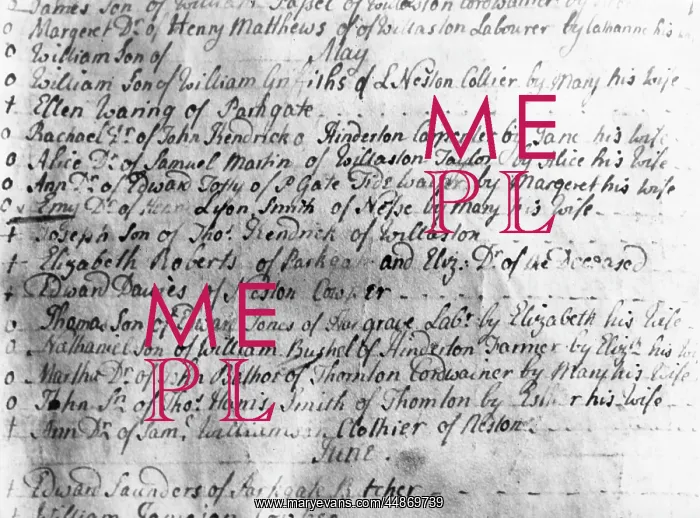 James Son of William of Willaston Cordwainer by
Margeret Dr. of Henry Matthews of Willaston Labourer by Catharine his
William Son of May
William Son of William Griffiths of L Neston Collier by Mary his Wife
Ellen Waring of Parkgate
Rachael Dr. of John Kendrick of Hinderton Carpenter by Jane his Wife
Alice Dr. of Samuel Martin of Willaston Taylor by Alice his Wife
Ann Dr. of Edward of P Gate Tide Waiter by Margeret his Wife
Emy Dr. of Henry Lyon, Smith of Nesse by Mary his Wife
Joseph Son of Thos. Kendrick of Willaston
Elizabeth Roberts of Parkgate and Eliz: Dr. of the Deceased
Edward Davies of Neston Cowper
Thomas Son of Edward Jones of Hargrave Labr. by Elizabeth his Wife
Nathaniel Son of William Bushel of Hinderton Farmer by Elizth. his Wi
Martha Dr. of John of Thornton Cordwainer by Mary his Wife
John Sn. of Thos. Smith of Thornton by Esther his Wife
Ann Dr. of Saml. Williamson Clothier of Neston
June
Edward Saunders of Parkgate Butcher
William
ME
PL
ME
PL
www.maryevans.com/44869739